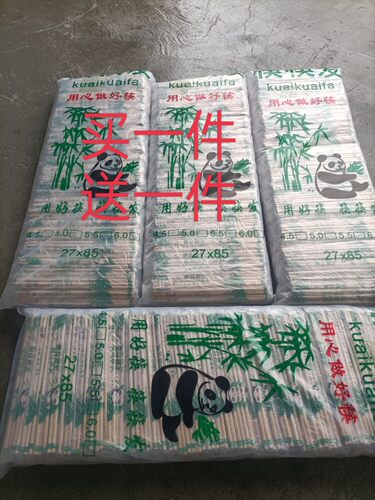 kuaikuaifa
用心做好筷
用好筷 筷筷发
4.5 5.0 5.5 6.0
27×85
kuaikuaifa
用心做好筷
用好筷 筷筷发
4.5 5.0 5.5 6.0
27×85
筷筷发
kuaikuaifa
用心做好筷
用好筷 筷筷发
4.5 5.0 5.5 6.0
27×85
买一件
送一件
kuaikuaifa
用心做好筷
用好筷 筷筷发
4.5 5.0 5.5 6.0
27×85